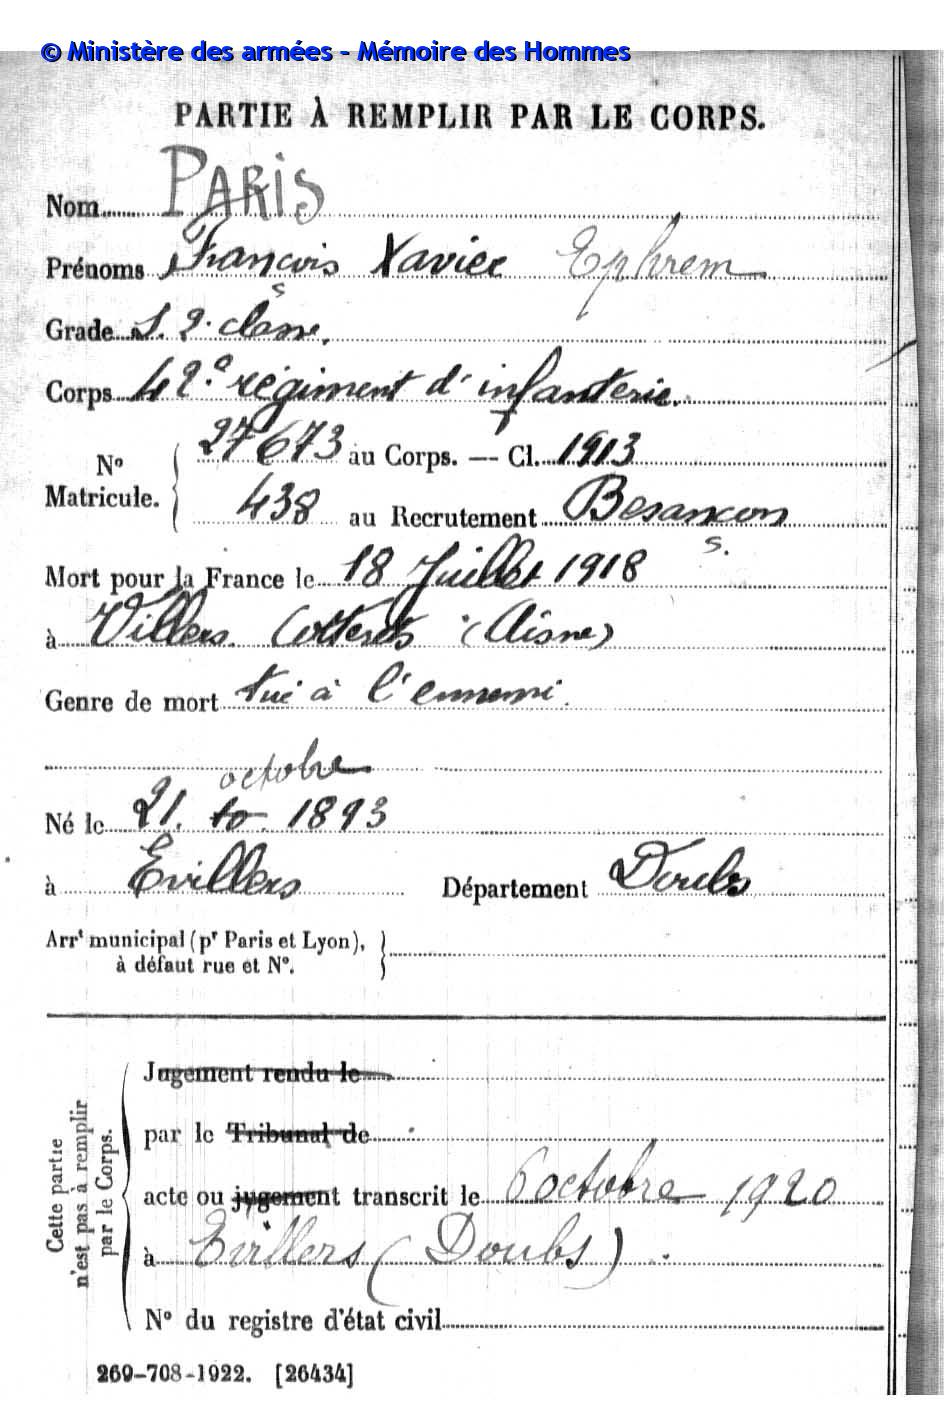 © Ministère des armées - Mémoire des Hommes
PARTIE À REMPLIR PAR LE CORPS.
Nom PARIS
Prénoms François Xavier Ephrem
Grade S. 2e classe.
Corps 42e régiment d'infanterie.
No Matricule. { 27673 au Corps. — Cl. 1913
438 au Recrutement Besançon
s.
Mort pour la France le 18 Juillet 1918
à Villers Cotterets (Aisne)
Genre de mort tué à l'ennemi.
octobre
Né le 21. 1893
à Evillers Département Doubs
Arrt municipal (pr Paris et Lyon), }
à défaut rue et No.
Cette partie
n'est pas à remplir
par le Corps.
Jugement rendu le
par le Tribunal de
acte ou jugement transcrit le 6 octobre 1920
à Evillers (Doubs)
No du registre d'état civil
269-708-1922. [26434]